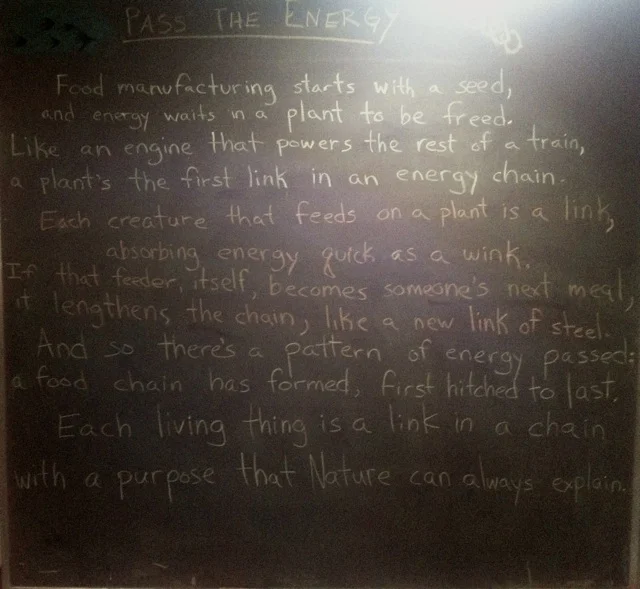 PASS THE ENERGY
Food manufacturing starts with a seed,
and energy waits in a plant to be freed.
Like an engine that powers the rest of a train,
a plant's the first link in an energy chain.
Each creature that feeds on a plant is a link,
absorbing energy quick as a wink.
If that feeder, itself, becomes someone's next meal,
it lengthens the chain, like a new link of steel.
And so there's a pattern of energy passed:
a food chain has formed, first hitched to last.
Each living thing is a link in a chain
with a purpose that Nature can always explain.